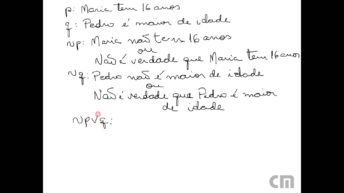 p: Maria tem 16 anos
q: Pedro é maior de idade
~p: Maria não tem 16 anos
ou
Não é verdade que Maria tem 16 anos
~q: Pedro não é maior de idade
ou
Não é verdade que Pedro é maior
de idade
~p∨q:
CM